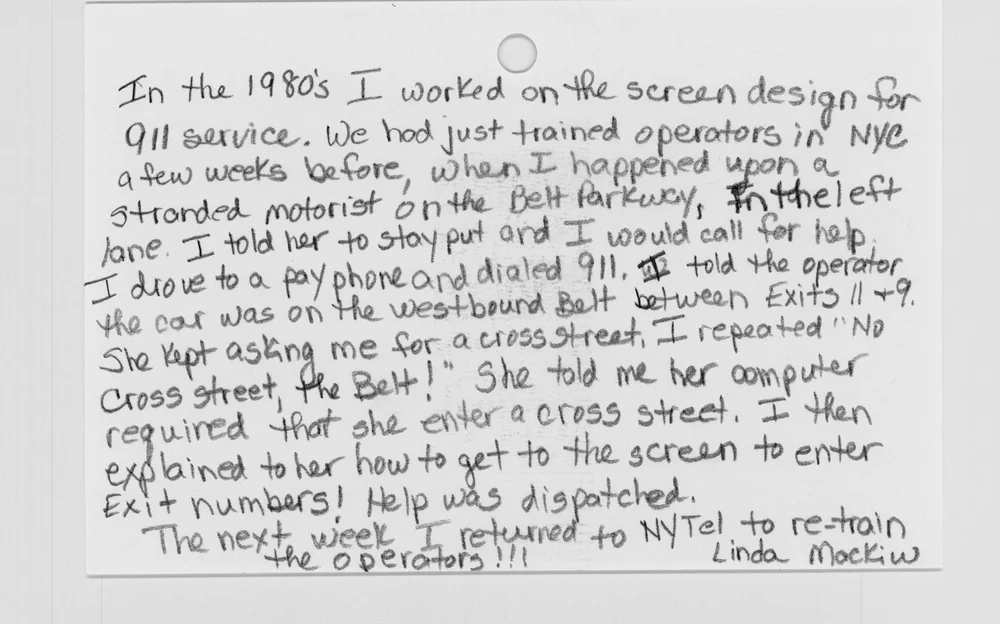 In the 1980's I worked on the screen design for
911 service. We had just trained operators in NYC
a few weeks before, when I happened upon a
stranded motorist on the Belt Parkway, in the left
lane. I told her to stay put and I would call for help.
I drove to a pay phone and dialed 911. I told the operator
the car was on the westbound Belt between Exits 11 + 9.
She kept asking me for a cross street. I repeated "No
Cross street, the Belt!" She told me her computer
required that she enter a cross street. I then
explained to her how to get to the screen to enter
Exit numbers! Help was dispatched.
The next week I returned to NYTel to re-train
the operators!!! Linda Mockiw